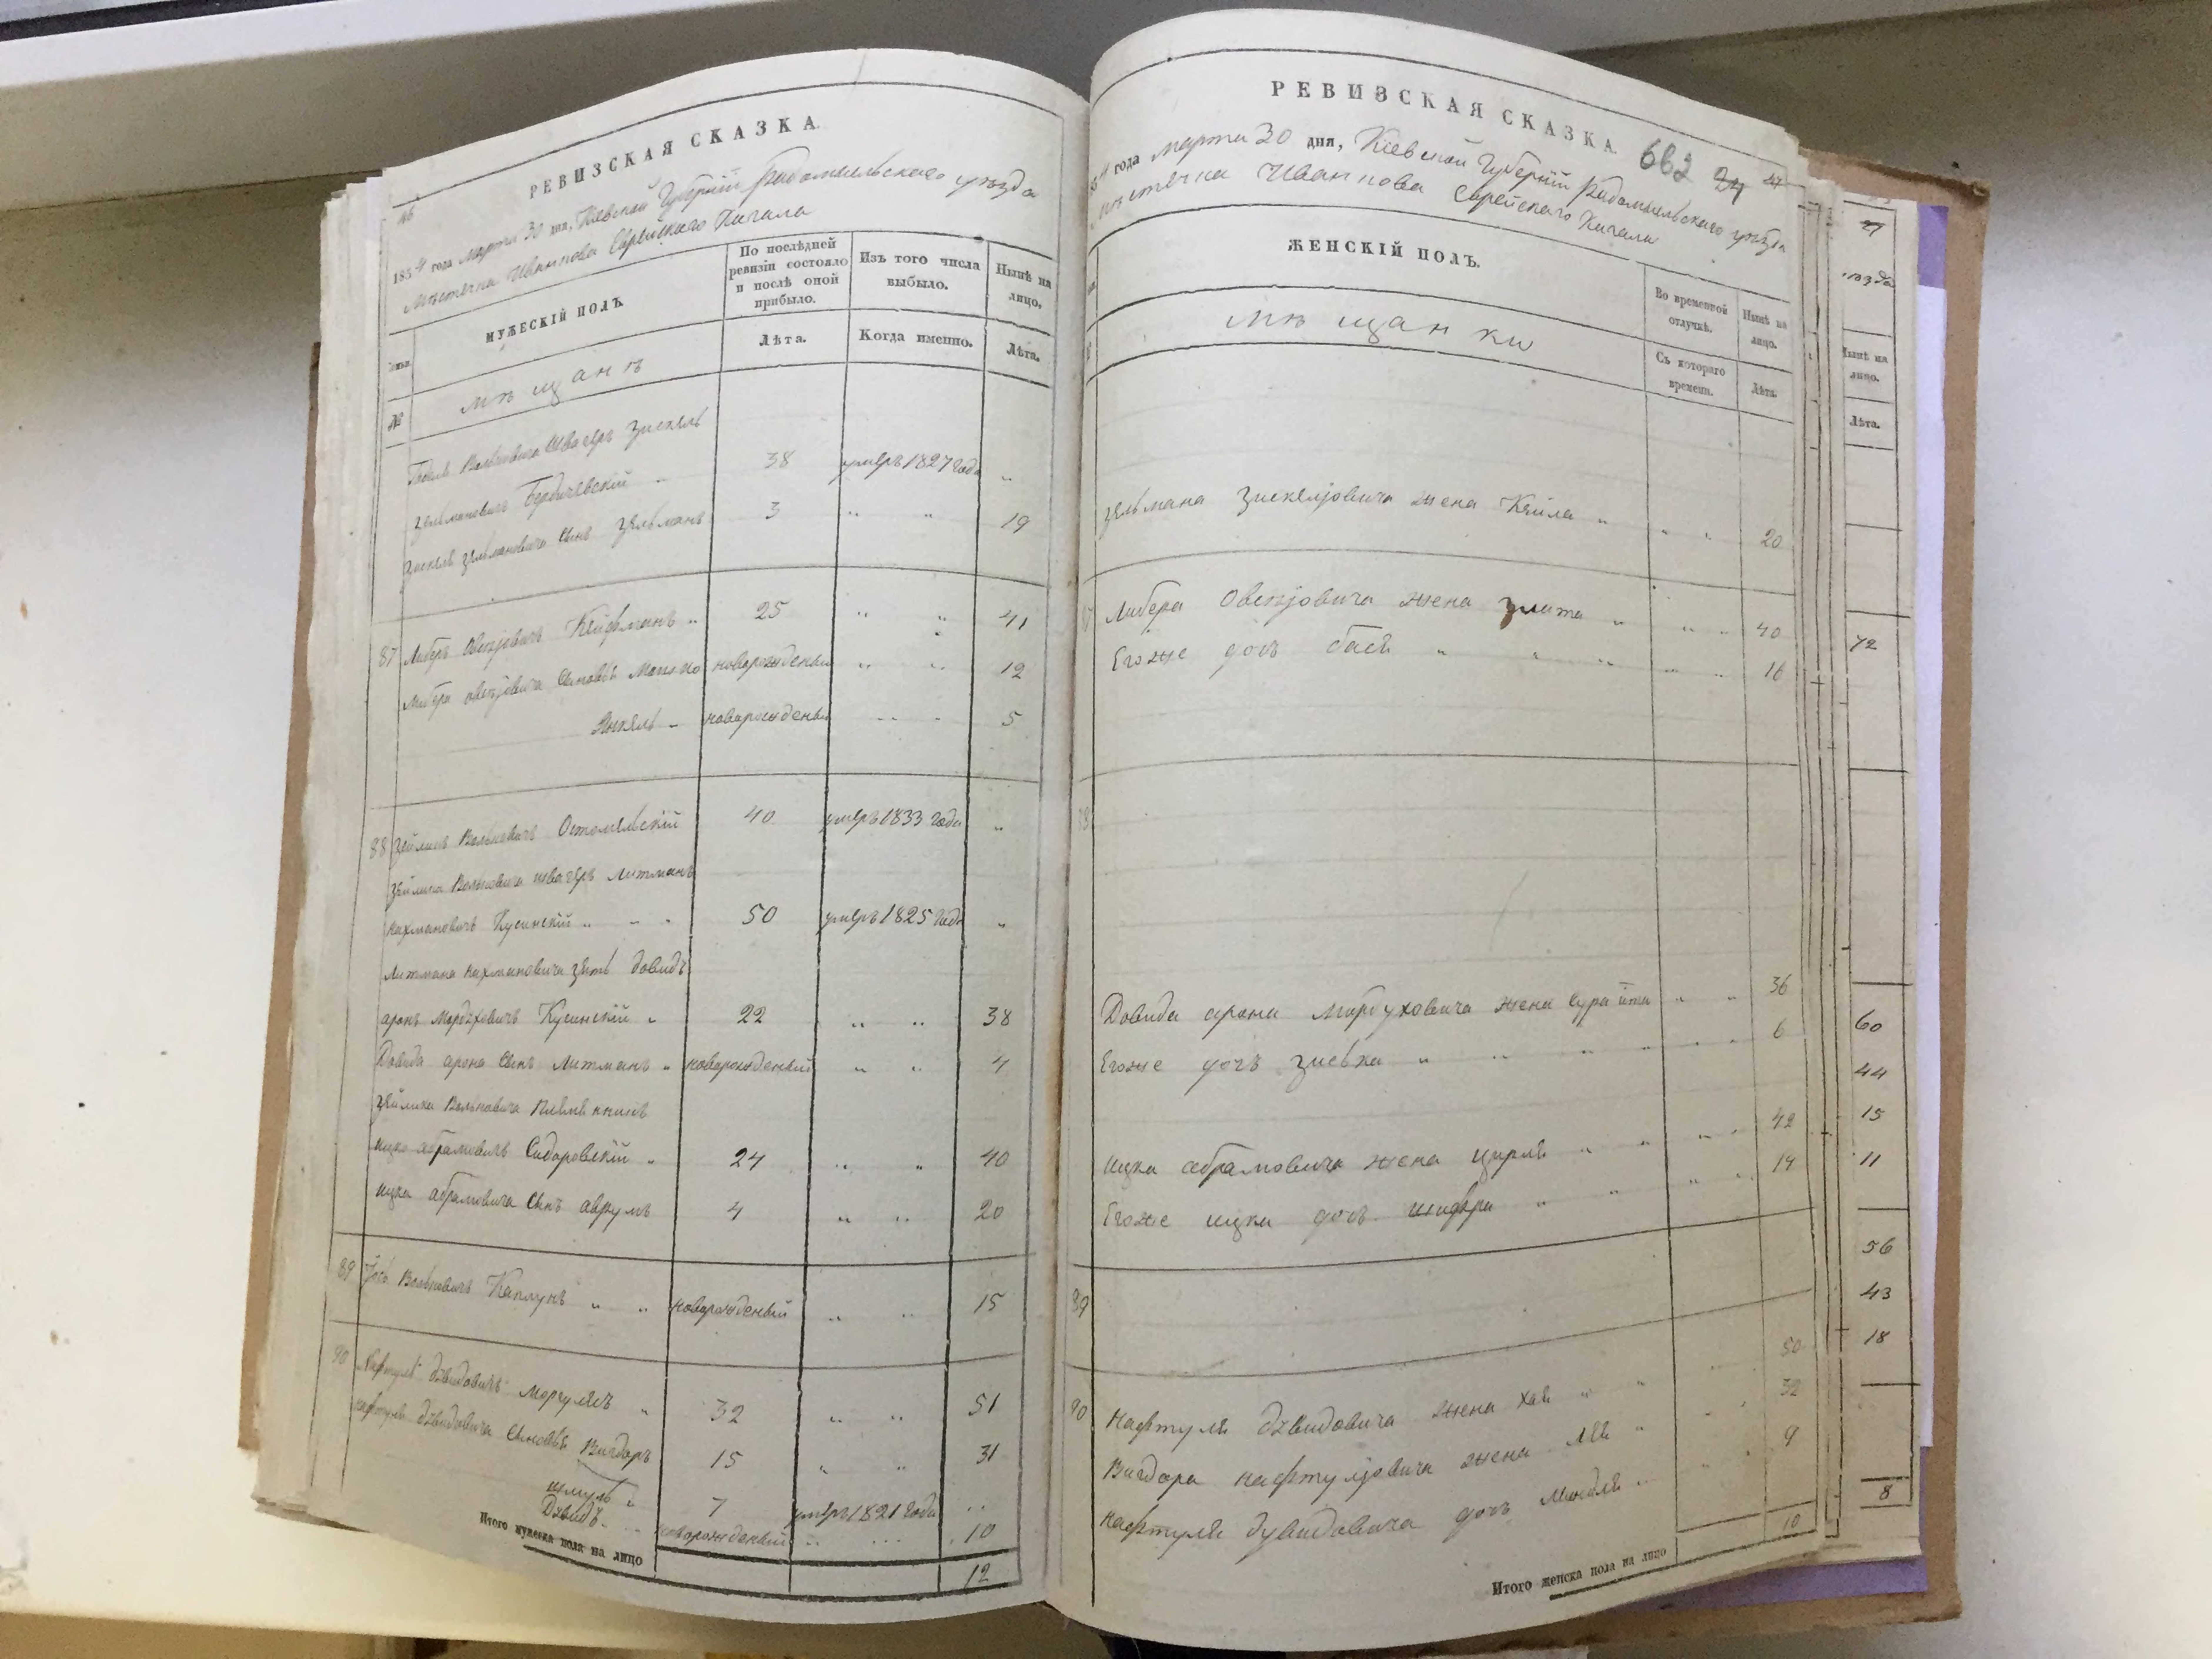 46
РЕВИЗСКАЯ СКАЗКА
1834 года Марта 30 дня, Кіевской Губерніи Радомысльскаго уѣзда
Мѣстечка Иванкова Еврейскаго Кагала
МУЖЕСКІЙ ПОЛЪ
По послѣдней ревизіи состояло и послѣ оной прибыло.
Изъ того числа выбыло.
Нынѣ на лицо.
№
мѣщанъ
Лѣта.
Когда именно.
Лѣта.
Вольковича Швагеръ Зискель
Зельмановичъ Бердичевскій 38 умеръ 1827 года "
Зискеля Зельмановича Сынъ Зельманъ 3 " " 19
87 Либеръ Овсѣјовичъ Клейфманъ " 25 " " 41
Либера Овсѣјовича Сыновья Мошко новорожденый " " 12
Янкель " новорожденый " " 5
88 Зейликъ Вольковичъ Остомельскій 40 умеръ 1833 года "
Зейлика Вольковича швагеръ Литманъ
Нахмановичъ Кусинскій " " " 50 умеръ 1825 года "
Литмана Нахмановича зять Довидъ
Аронъ Мордуховичъ Кусинскій " 22 " " 38
Довида Арона Сынъ Литманъ " новорожденый " " 4
Зейлика Вольковича Племѣнникъ
Ицко Абрамовичъ Сидоровскій " 24 " " 40
Ицка Абрамовича Сынъ Аврумъ 4 " " 20
89 Вольковичъ Каплунъ " " новорожденый " " 15
90 Нафтуль Дувидовичъ Моргулясъ " 32 " " 51
Нафтуля Дувидовича Сыновья Вигдоръ 15 " " 31
Шмуль " 7 умеръ 1821 года "
Дувидъ новорожденый " " 10
Итого мужеска пола на лицо 12
РЕВИЗСКАЯ СКАЗКА.
662 24
года Марта 30 дня, Кіевской Губерніи Радомысльскаго уѣзда
мѣстечка Иванкова Еврейскаго Кагала
ЖЕНСКІЙ ПОЛЪ.
Во временной отлучкѣ.
Нынѣ на лицо.
мѣщанки
Съ котораго времени.
Лѣта.
Зельмана Зискелјовича жена Кейла " " " 20
Либера Овсѣјовича жена Злата " " " 40
Егоже дочь Бася " " " " " 16
Довида Арона Мордуховича жена Сура Ита " " 36
Егоже дочь Зисвка " " " " " " 6
Ицка Абрамовича жена Цирля " " " " 42
Егоже Ицка дочь Шифра " " " " 14
89
90 Нафтуля Дувидовича жена Хая " " 50
Вигдора Нафтулјовича жена Лея " 32
Нафтуля Дувидовича дочь Миндля " 9
Итого женска пола на лицо 10
уѣзда
Нынѣ на лицо.
Лѣта.
72
60
44
15
11
56
43
18
8